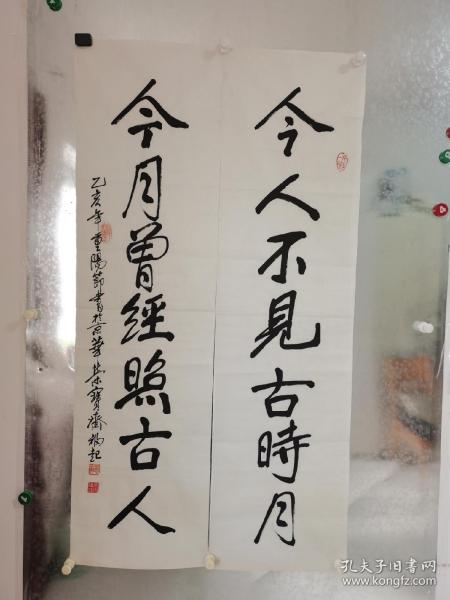 今人不見古時月
今月曾經照古人
乙亥年重陽節書於京華榮寶齋楊起
孔夫子旧书网
www.kongfz.com